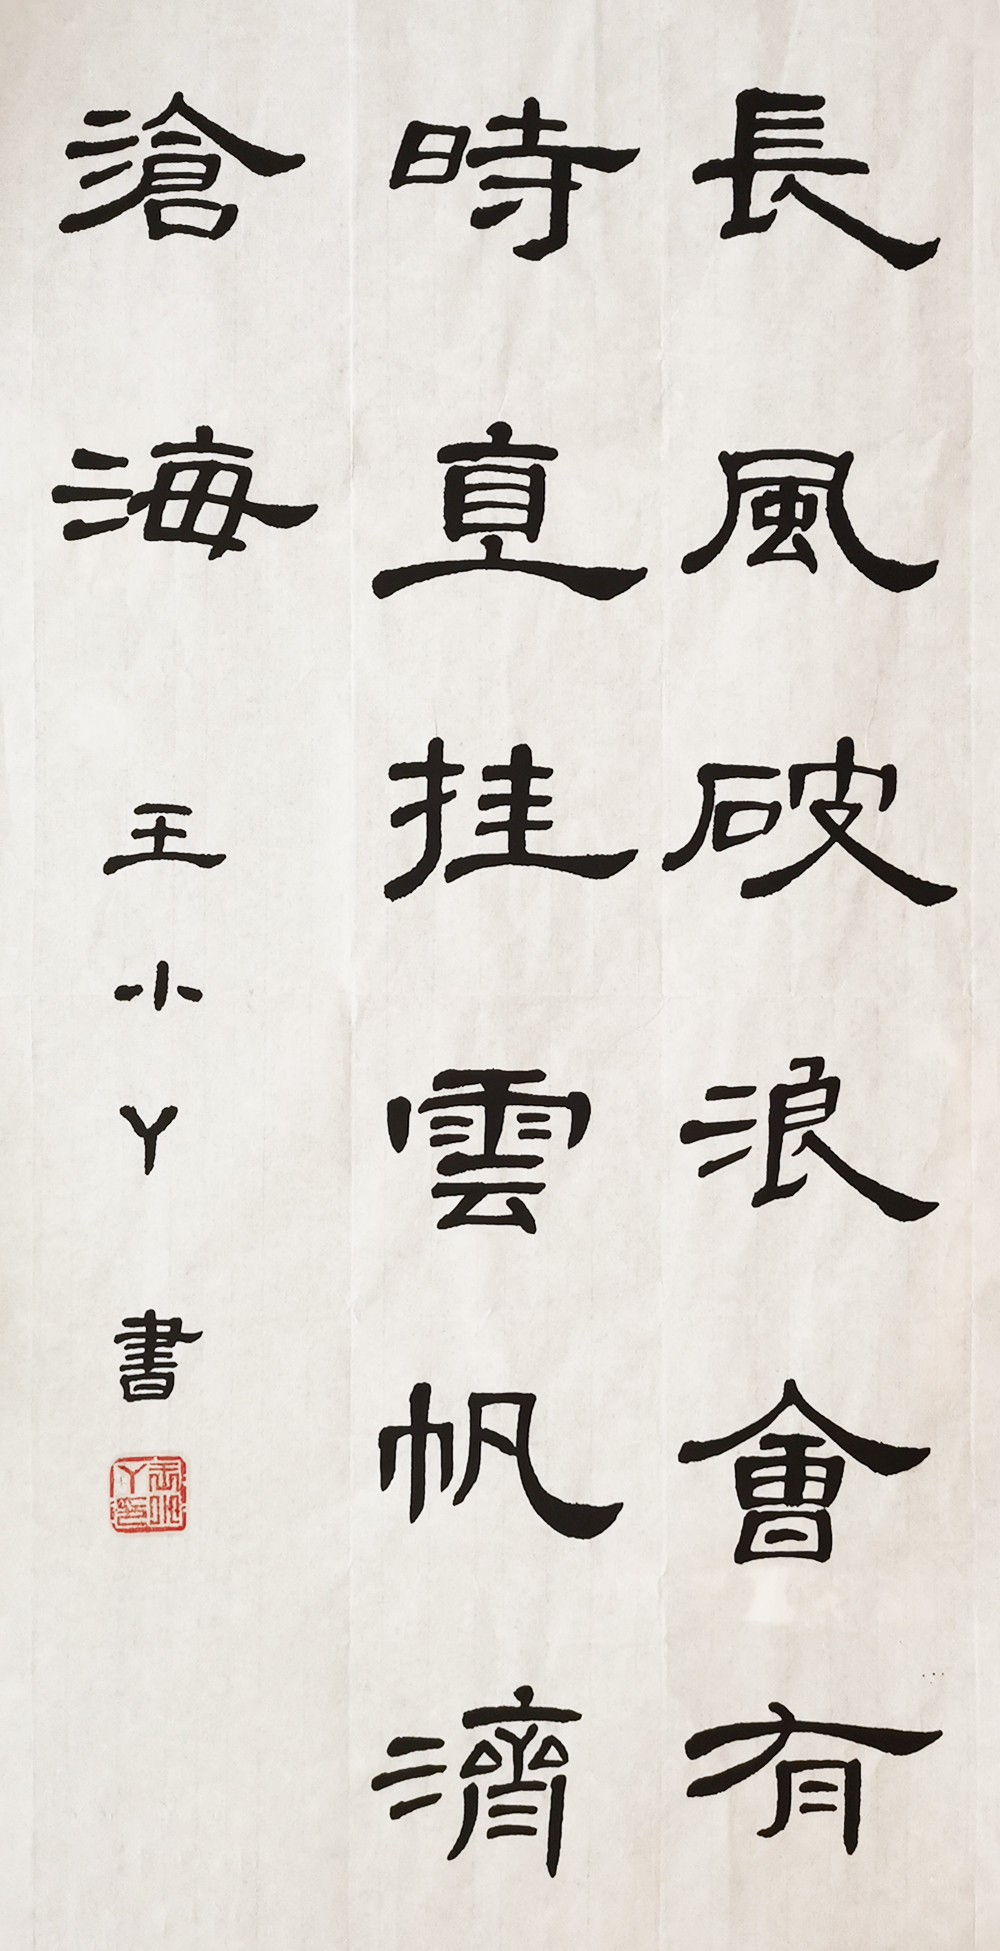 長風破浪會有
時直挂雲帆濟
滄海
王小丫書